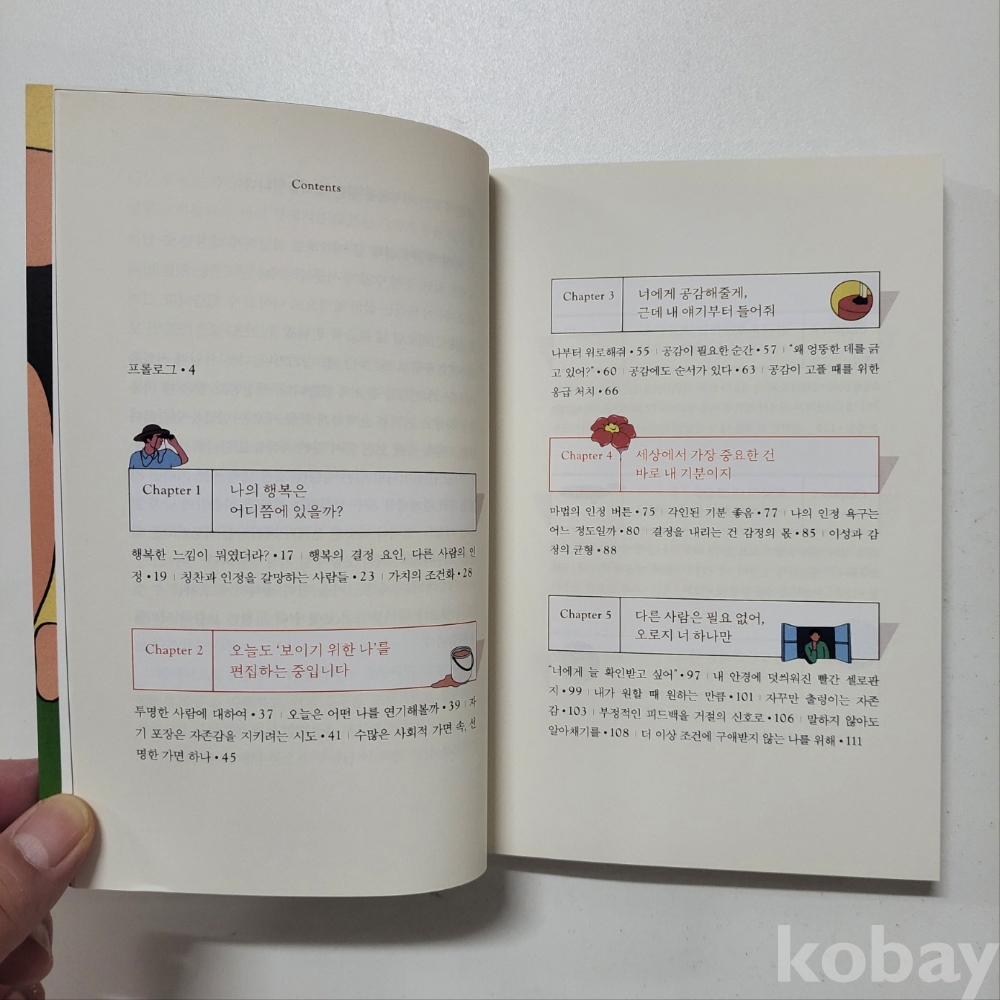 Contents
프롤로그 • 4
Chapter 1
나의 행복은
어디쯤에 있을까?
행복한 느낌이 뭐였더라? • 17 | 행복의 결정 요인, 다른 사람의 인
정 • 19 | 칭찬과 인정을 갈망하는 사람들 • 23 | 가치의 조건화 • 28
Chapter 2
오늘도 '보이기 위한 나'를
편집하는 중입니다
투명한 사람에 대하여 • 37 | 오늘은 어떤 나를 연기해볼까 • 39 | 자
기 포장은 자존감을 지키려는 시도 • 41 | 수많은 사회적 가면 속, 선
명한 가면 하나 • 45
Chapter 3
너에게 공감해줄게,
근데 내 얘기부터 들어줘
나부터 위로해줘 • 55 | 공감이 필요한 순간 • 57 | "왜 엉뚱한 데를 긁
고 있어?" • 60 | 공감에도 순서가 있다 • 63 | 공감이 고플 때를 위한
응급 처치 • 66
Chapter 4
세상에서 가장 중요한 건
바로 내 기분이지
마법의 인정 버튼 • 75 | 각인된 기분 좋음 • 77 | 나의 인정 욕구는
어느 정도일까 • 80 | 결정을 내리는 건 감정의 몫 • 85 | 이성과 감
정의 균형 • 88
Chapter 5
다른 사람은 필요 없어,
오로지 너 하나만
"너에게 늘 확인받고 싶어" • 97 | 내 안경에 덧씌워진 빨간 셀로판
지 • 99 | 내가 원할 때 원하는 만큼 • 101 | 자꾸만 출렁이는 자존
감 • 103 | 부정적인 피드백을 거절의 신호로 • 106 | 말하지 않아도
알아채기를 • 108 | 더 이상 조건에 구애받지 않는 나를 위해 • 111
kobay